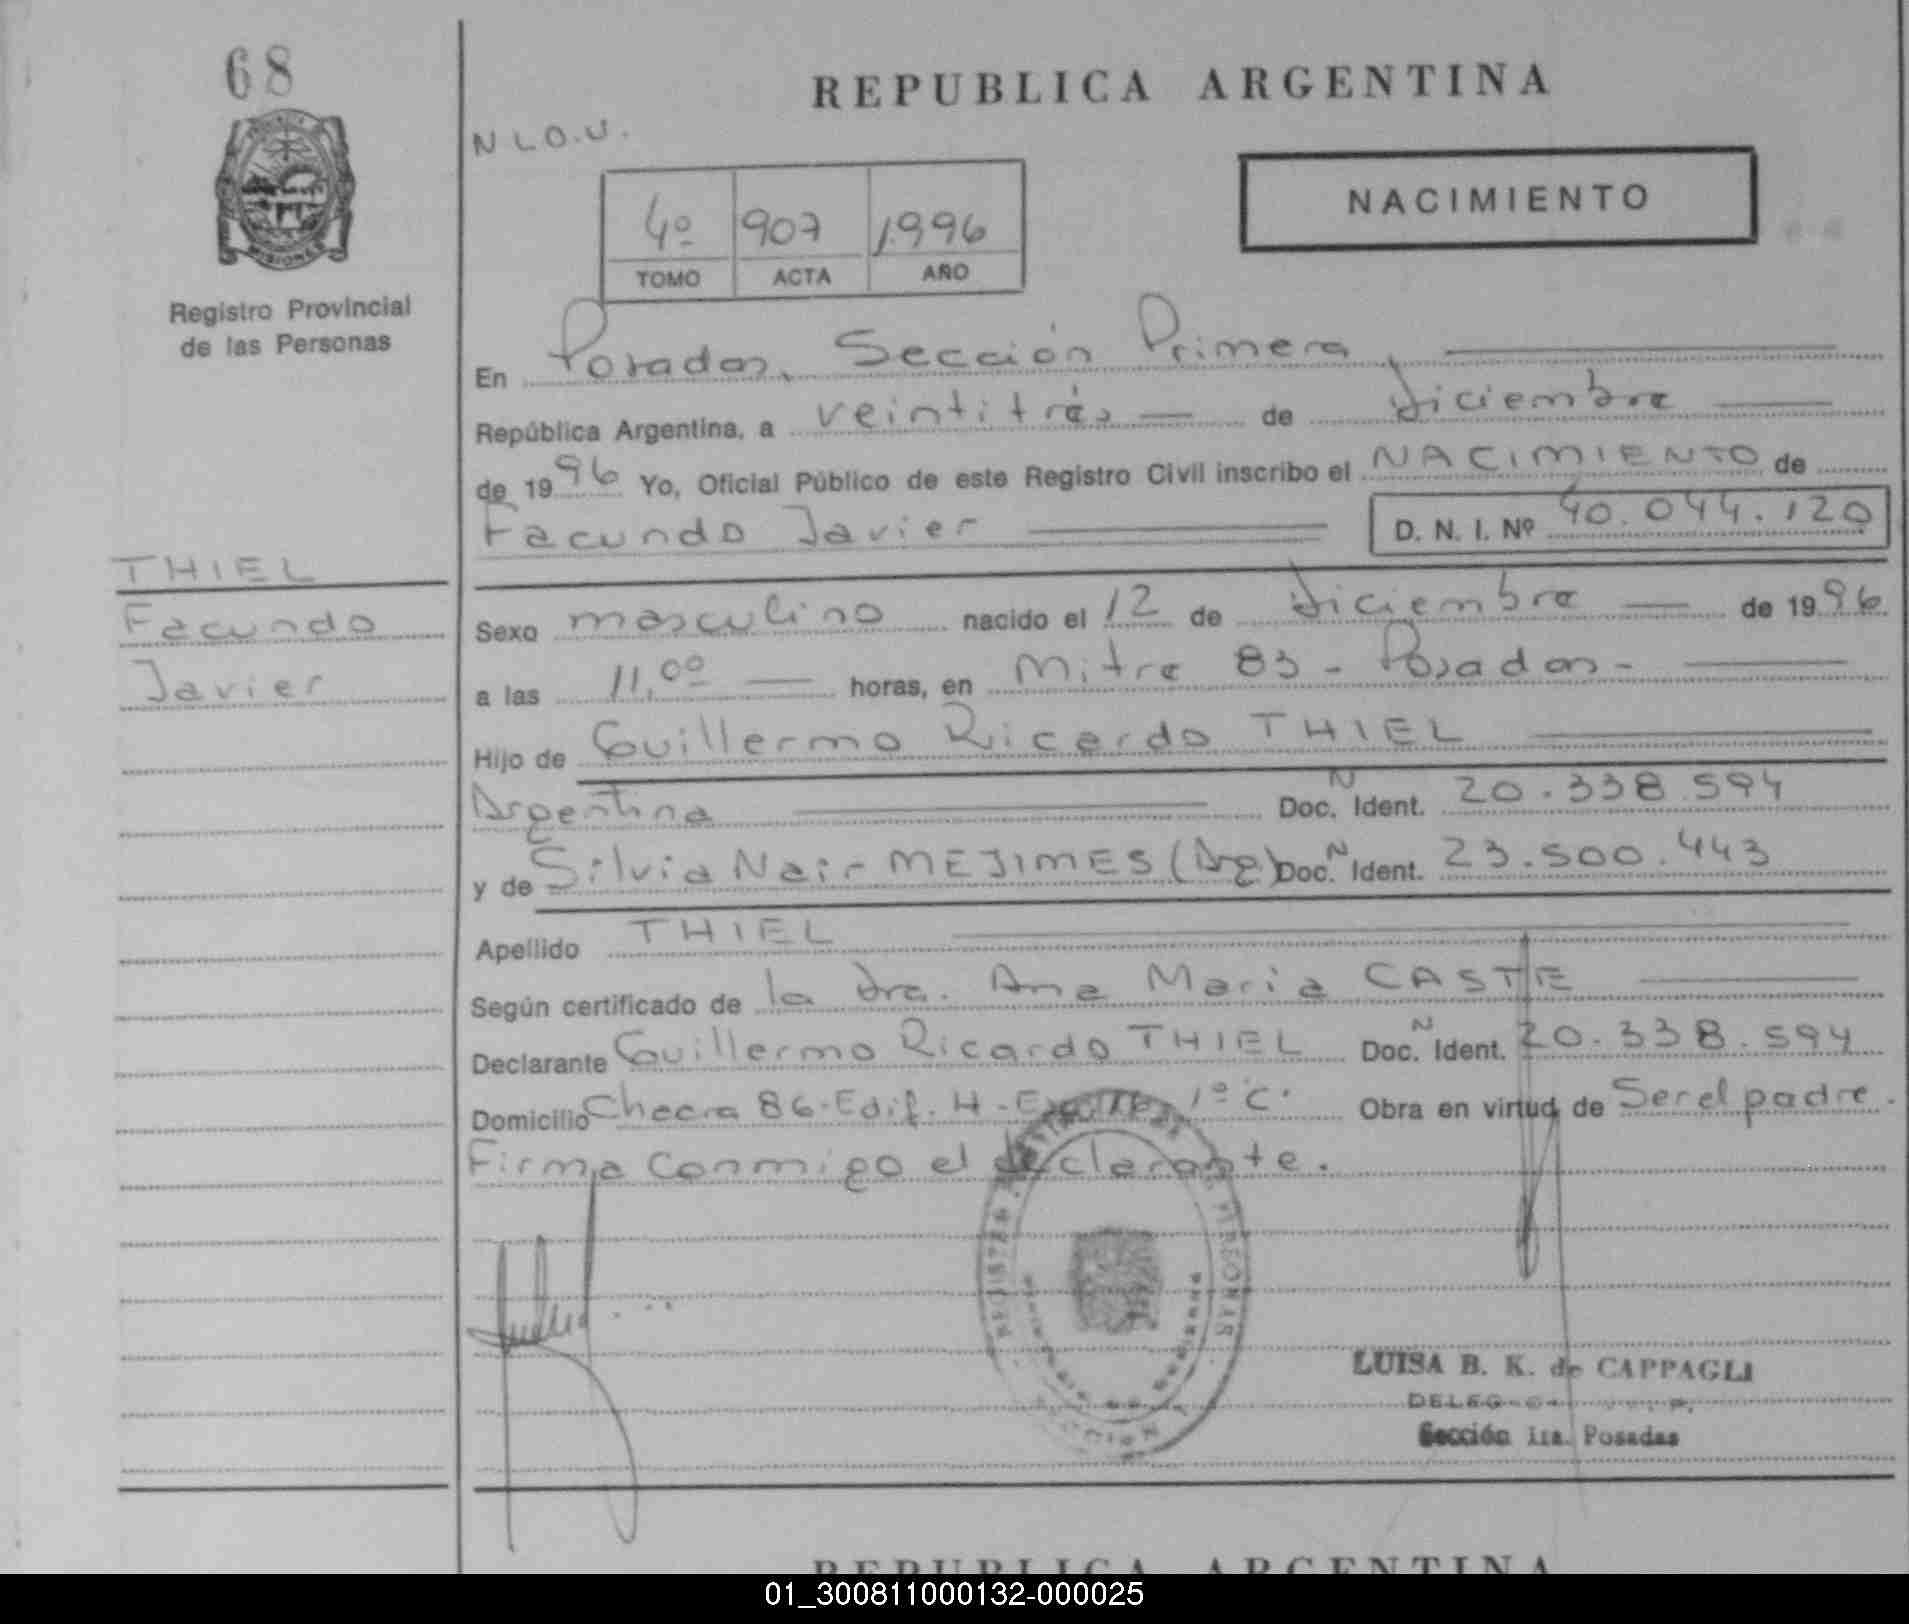 68
REPUBLICA ARGENTINA
N L O.U.
NACIMIENTO
4º 907 1996
TOMO ACTA AÑO
MISIONES
Registro Provincial
de las Personas
En Posadas, Sección Primera,
República Argentina, a veintitrés de diciembre
de 1996 Yo, Oficial Público de este Registro Civil inscribo el NACIMIENTO de
Facundo Javier D. N. I. Nº 40.044.120
THIEL
Facundo
Javier
Sexo masculino nacido el 12 de diciembre de 1996
a las 11,00 horas, en Mitre 83 - Posadas -
Hijo de Guillermo Ricardo THIEL
Argentina Doc. N Ident. 20.338.594
y de Silvia Nair MEJIMES (Arg) Doc. N Ident. 23.500.443
Apellido THIEL
Según certificado de la Dra. Ana Maria CASTE
Declarante Guillermo Ricardo THIEL Doc. N Ident. 20.338.594
Domicilio Checra 86-Edif. H - 1º C. Obra en virtud de Ser el padre.
Firma Conmigo el declarante.
LUISA B. K. de CAPPAGLI
Sección 1ra. Posadas
REPUBLICA ARGENTINA
01_300811000132-000025